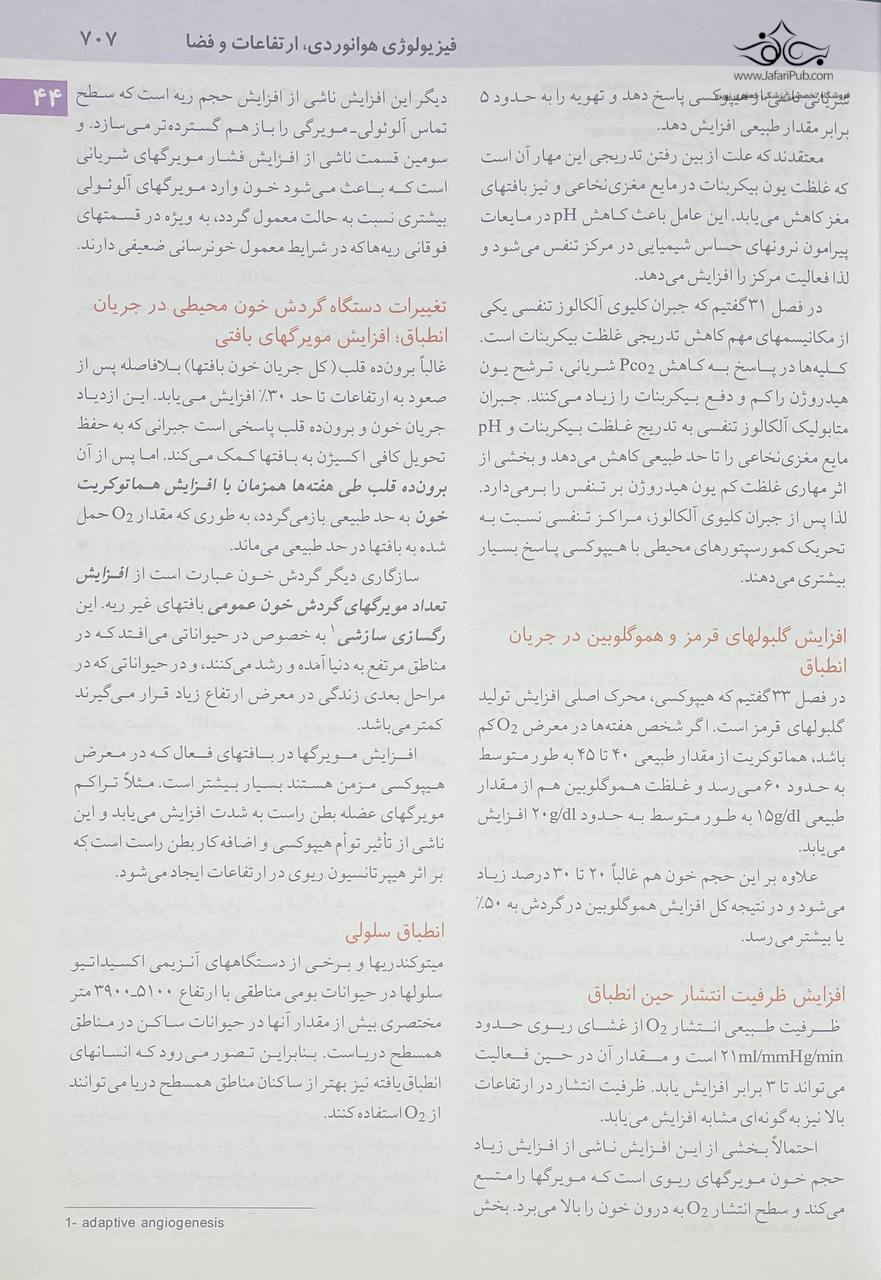 فیزیولوژی هوانوردی، ارتفاعات و فضا
۷۰۷
www.JafariPub.com
۴۴
شریانی ناشی از هیپوکسی پاسخ دهد و تهویه را به حدود ۵
برابر مقدار طبیعی افزایش دهد.
معتقدند که علت از بین رفتن تدریجی این مهار آن است
که غلظت یون بیکربنات در مایع مغزی‌نخاعی و نیز بافتهای
مغز کاهش می‌یابد. این عامل باعث کاهش pH در مایعات
پیرامون نرونهای حساس شیمیایی در مرکز تنفس می‌شود و
لذا فعالیت مرکز را افزایش می‌دهد.
در فصل ۳۱ گفتیم که جبران کلیوی آلکالوز تنفسی یکی
از مکانیسمهای مهم کاهش تدریجی غلظت بیکربنات است.
کلیه‌ها در پاسخ به کاهش Pco2 شریانی، ترشح یون
هیدروژن را کم و دفع بیکربنات را زیاد می‌کنند. جبران
متابولیک آلکالوز تنفسی به تدریج غلظت بیکربنات و pH
مایع مغزی‌نخاعی را تا حد طبیعی کاهش می‌دهد و بخشی از
اثر مهاری غلظت کم یون هیدروژن بر تنفس را برمی‌دارد.
لذا پس از جبران کلیوی آلکالوز، مراکز تنفسی نسبت به
تحریک کمورسپتورهای محیطی با هیپوکسی پاسخ بسیار
بیشتری می‌دهند.
افزایش گلبولهای قرمز و هموگلوبین در جریان
انطباق
در فصل ۳۳ گفتیم که هیپوکسی، محرک اصلی افزایش تولید
گلبولهای قرمز است. اگر شخص هفته‌ها در معرض O2 کم
باشد، هماتوکریت از مقدار طبیعی ۴۰ تا ۴۵ به طور متوسط
به حدود ۶۰ می‌رسد و غلظت هموگلوبین هم از مقدار
طبیعی ۱۵g/dl به طور متوسط به حدود ۲۰g/dl افزایش
می‌یابد.
علاوه بر این حجم خون هم غالباً ۲۰ تا ۳۰ درصد زیاد
می‌شود و در نتیجه کل افزایش هموگلوبین در گردش به ۵۰٪
یا بیشتر می‌رسد.
افزایش ظرفیت انتشار حین انطباق
ظرفیت طبیعی انتشار O2 از غشای ریوی حدود
۲۱ml/mmHg/min است و مقدار آن در حین فعالیت
می‌تواند تا ۳ برابر افزایش یابد. ظرفیت انتشار در ارتفاعات
بالا نیز به گونه‌ای مشابه افزایش می‌یابد.
احتمالاً بخشی از این افزایش ناشی از افزایش زیاد
حجم خون مویرگهای ریوی است که مویرگها را متسع
می‌کند و سطح انتشار O2 به درون خون را بالا می‌برد. بخش
دیگر این افزایش ناشی از افزایش حجم ریه است که سطح
تماس آلوئولی‌ـ‌مویرگی را باز هم گسترده‌تر می‌سازد. و
سومین قسمت ناشی از افزایش فشار مویرگهای شریانی
است که باعث می‌شود خون وارد مویرگهای آلوئولی
بیشتری نسبت به حالت معمول گردد، به ویژه در قسمتهای
فوقانی ریه‌ها که در شرایط معمول خونرسانی ضعیفی دارند.
تغییرات دستگاه گردش خون محیطی در جریان
انطباق؛ افزایش مویرگهای بافتی
غالباً برون‌ده قلب (کل جریان خون بافتها) بلافاصله پس از
صعود به ارتفاعات تا حد ۳۰٪ افزایش می‌یابد. این ازدیاد
جریان خون و برون‌ده قلب پاسخی است جبرانی که به حفظ
تحویل کافی اکسیژن به بافتها کمک می‌کند. اما پس از آن
برون‌ده قلب طی هفته‌ها همزمان با افزایش هماتوکریت
خون به حد طبیعی بازمی‌گردد، به طوری که مقدار O2 حمل
شده به بافتها در حد طبیعی می‌ماند.
سازگاری دیگر گردش خون عبارت است از افزایش
تعداد مویرگهای گردش خون عمومی بافتهای غیر ریه. این
رگسازی سازشی۱ به خصوص در حیواناتی می‌افتد که در
مناطق مرتفع به دنیا آمده و رشد می‌کنند، و در حیواناتی که در
مراحل بعدی زندگی در معرض ارتفاع زیاد قرار می‌گیرند
کمتر می‌باشد.
افزایش مویرگها در بافتهای فعال که در معرض
هیپوکسی مزمن هستند بسیار بیشتر است. مثلاً تراکم
مویرگهای عضله بطن راست به شدت افزایش می‌یابد و این
ناشی از تأثیر توأم هیپوکسی و اضافه کار بطن راست است که
بر اثر هیپرتانسیون ریوی در ارتفاعات ایجاد می‌شود.
انطباق سلولی
میتوکندریها و برخی از دستگاههای آنزیمی اکسیداتیو
سلولها در حیوانات بومی مناطقی با ارتفاع ۵۱۰۰ـ۳۹۰۰ متر
مختصری بیش از مقدار آنها در حیوانات ساکن در مناطق
همسطح دریاست. بنابراین تصور می‌رود که انسانهای
انطباق‌یافته نیز بهتر از ساکنان مناطق همسطح دریا می‌توانند
از O2 استفاده کنند.
1- adaptive angiogenesis